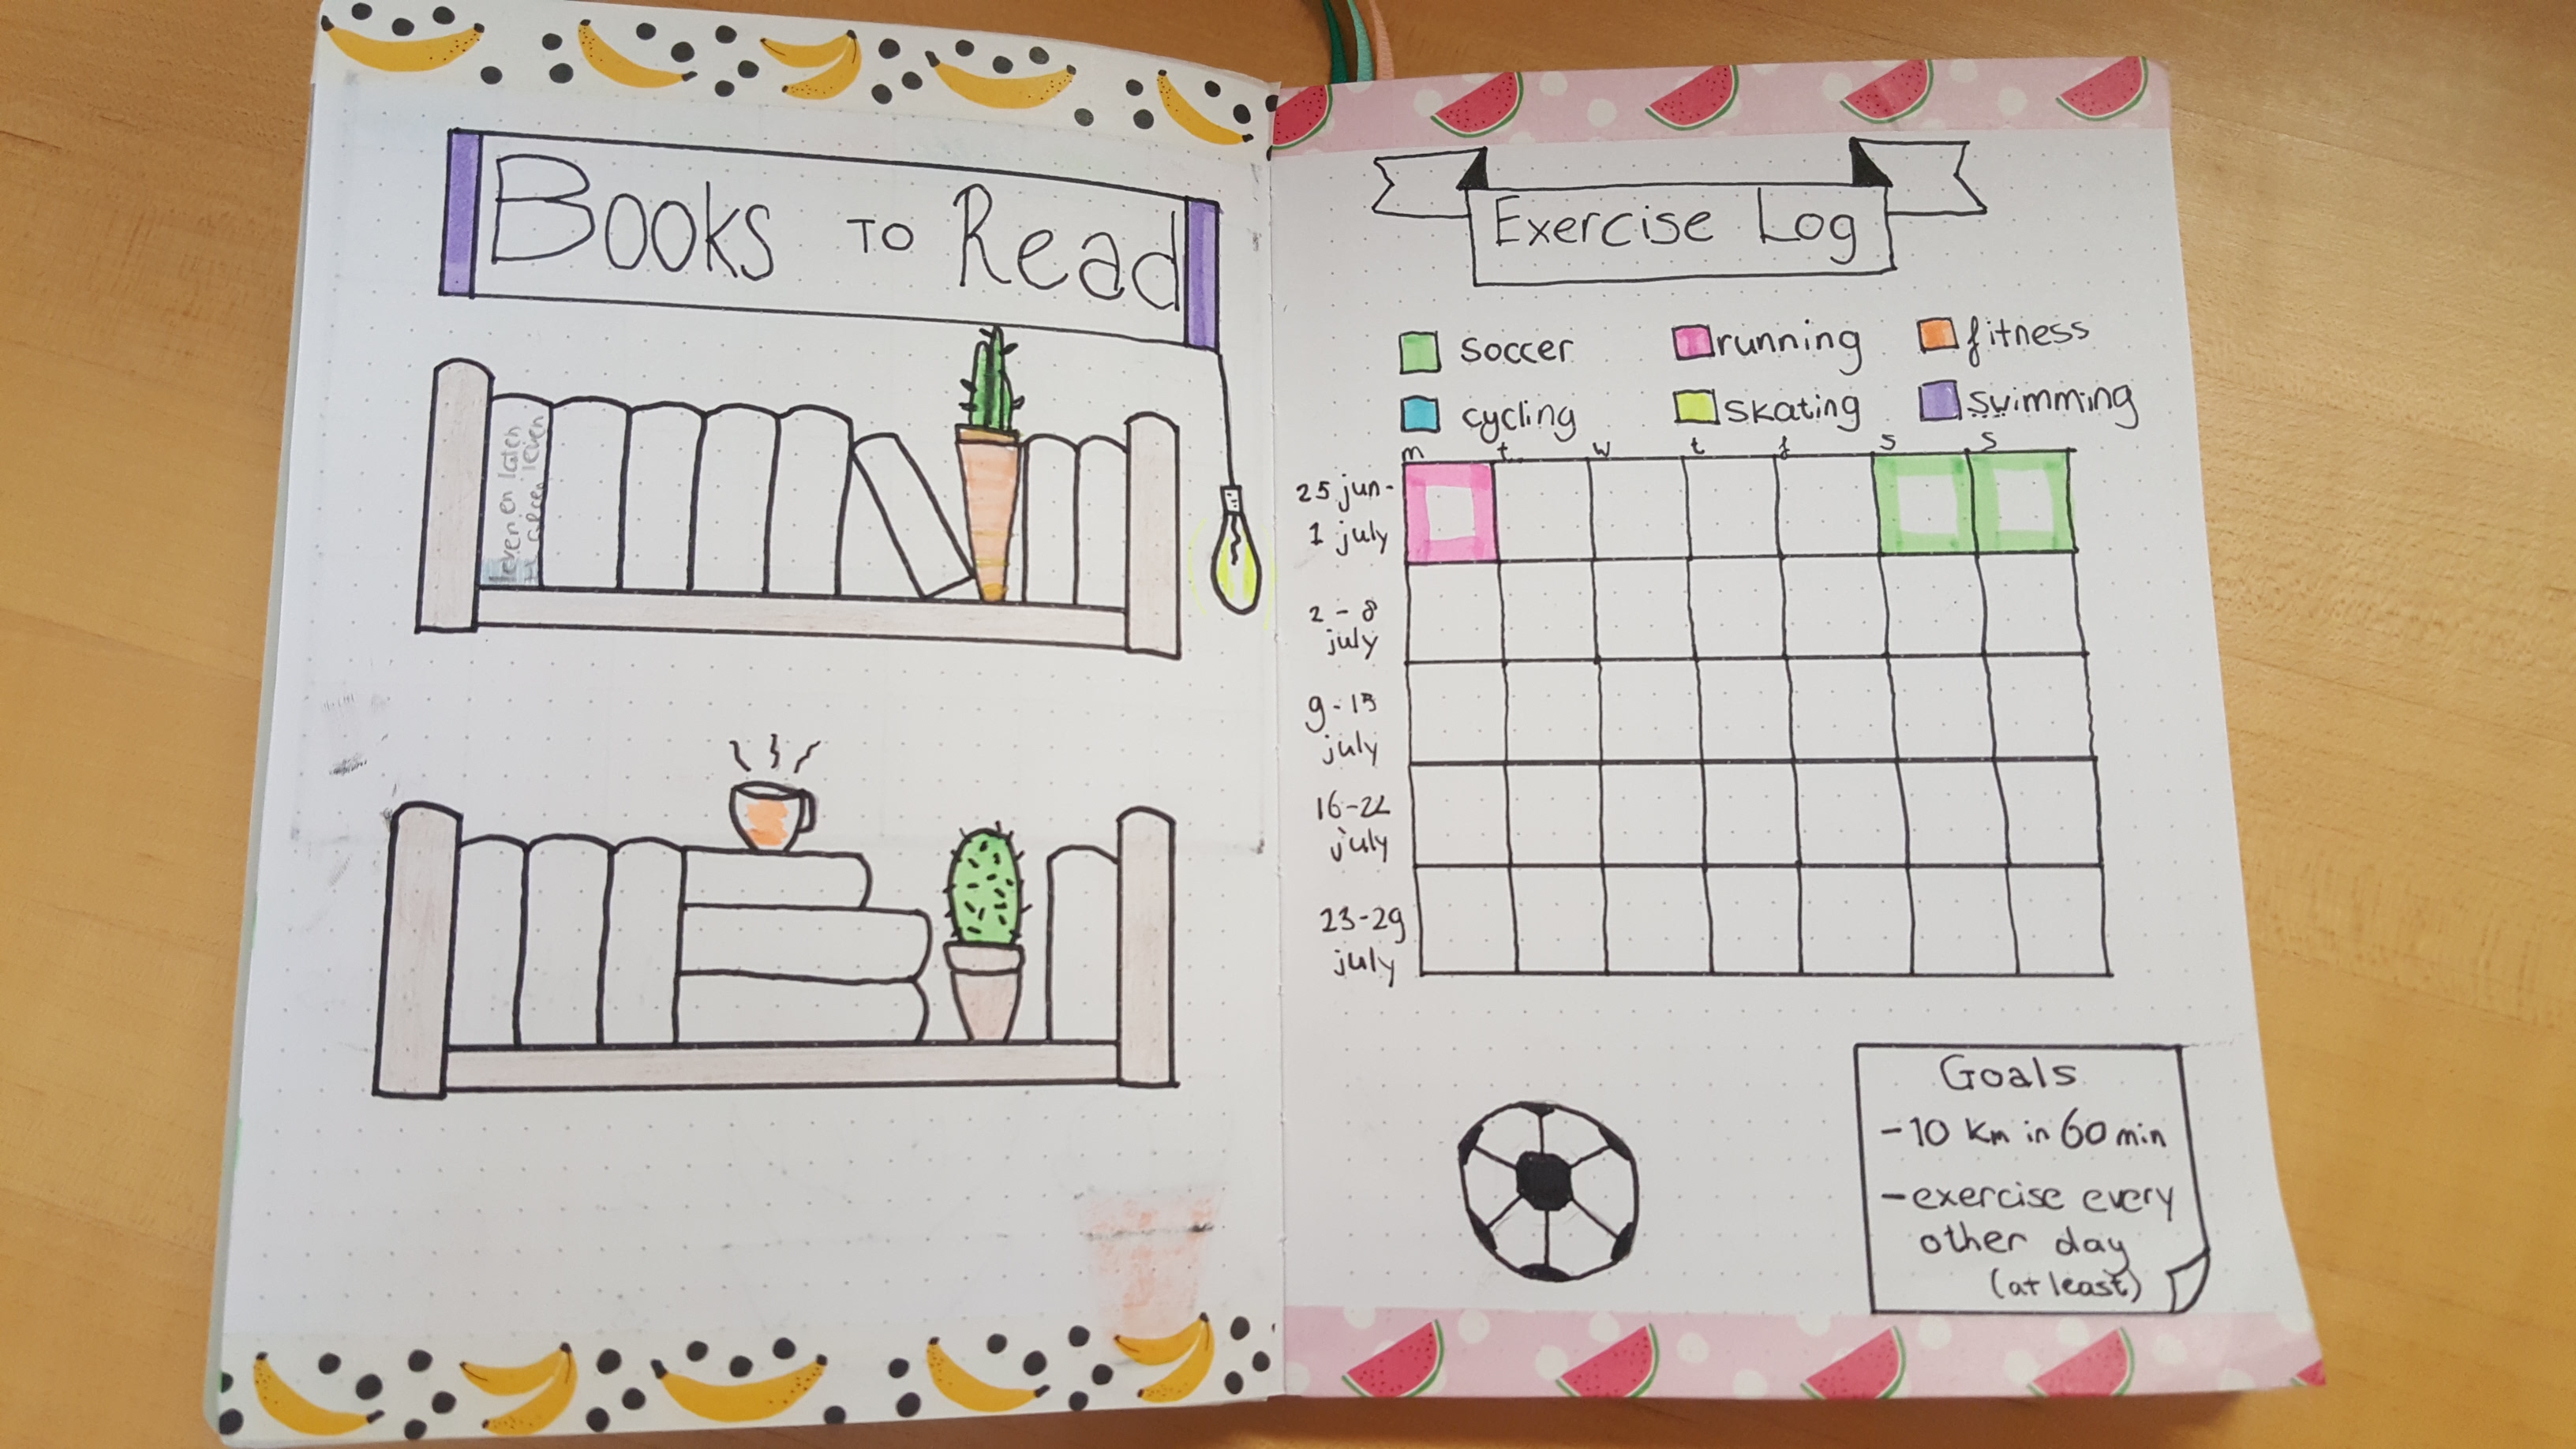 Books to Read
leven en laten
leven
Exercise Log
soccer
running
fitness
cycling
skating
swimming
m t w t f s s
25 jun-
1 july
2 - 8
july
9 - 15
july
16-22
july
23-29
july
Goals
- 10 km in 60 min
- exercise every
other day
(at least)